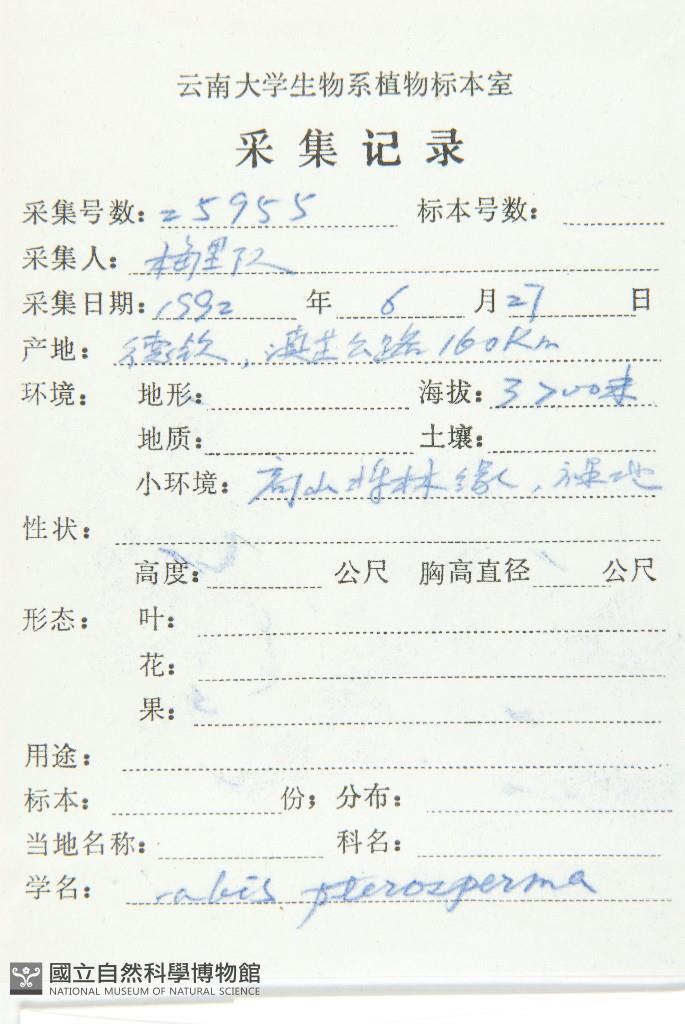 云南大学生物系植物标本室
采集记录
采集号数：25955 标本号数：
采集人：梅里队
采集日期：1992 年 6 月 27 日
产地：德钦，滇芷公路160Km
环境：地形： 海拔：3700米
地质： 土壤：
小环境：高山栎林缘，湿地
性状：
高度： 公尺 胸高直径 公尺
形态：叶：
花：
果：
用途：
标本： 份；分布：
当地名称： 科名：
学名：rabis pterosperma
國立自然科學博物館
NATIONAL MUSEUM OF NATURAL SCIENCE